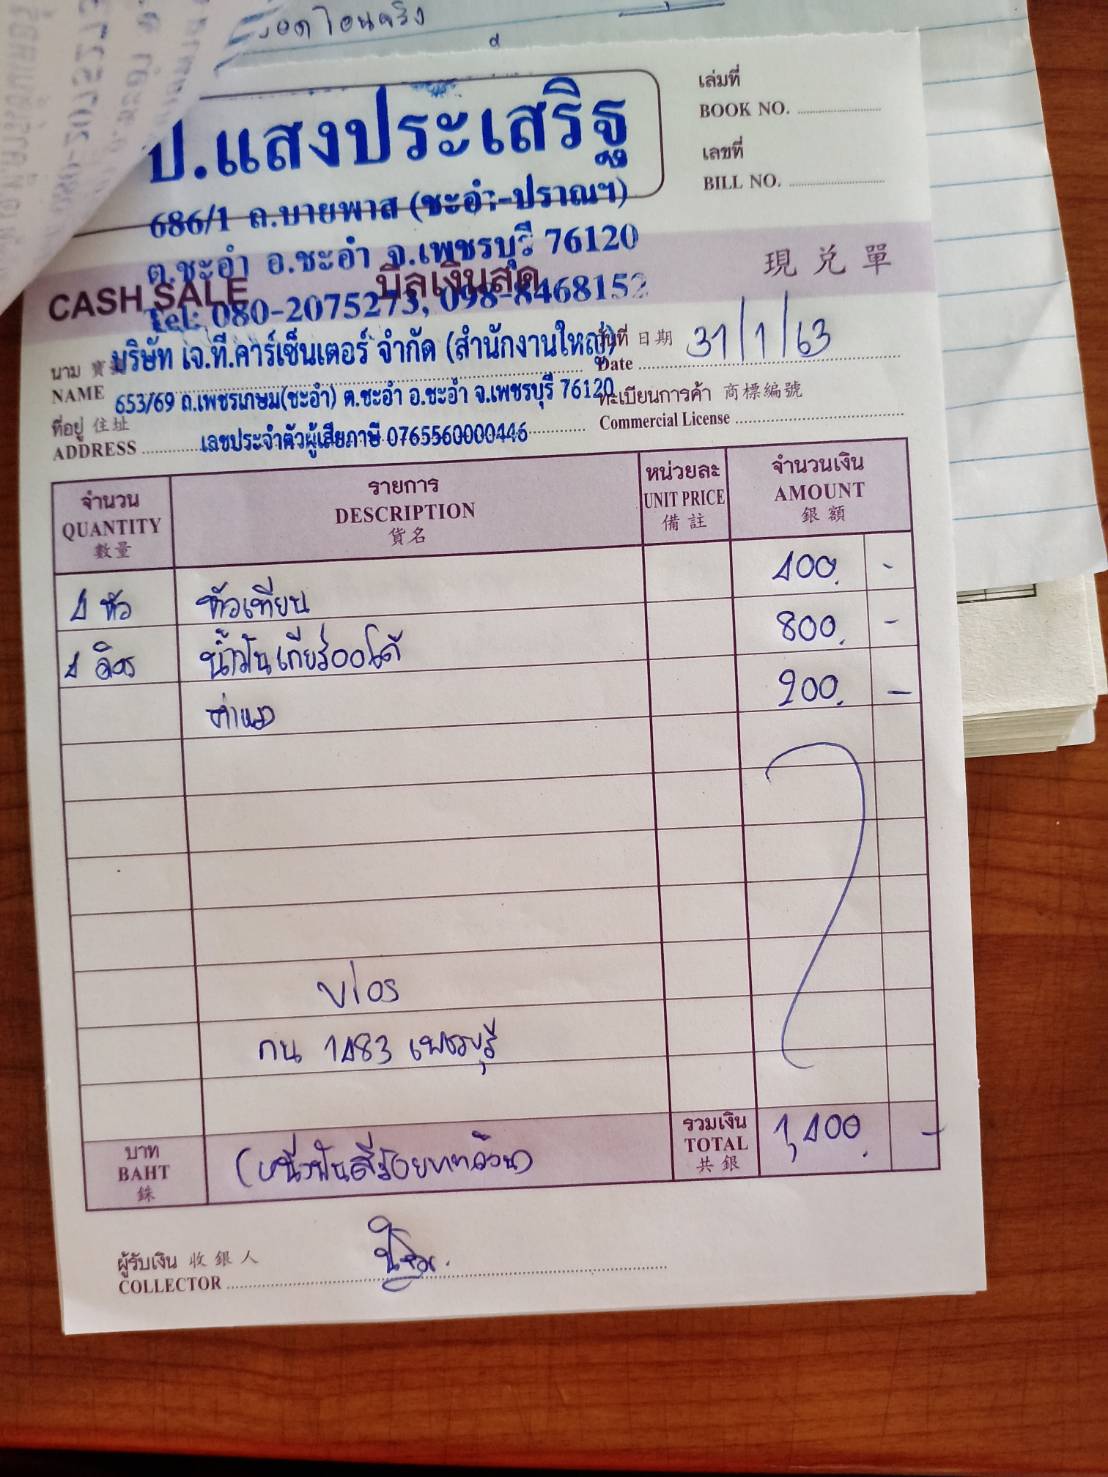 ยอดโอนจริง
ป.แสงประเสริฐ
เล่มที่
BOOK NO.
เลขที่
BILL NO.
686/1 ถ.บายพาส (ชะอำ-ปราณฯ)
ต.ชะอำ อ.ชะอำ จ.เพชรบุรี 76120
CASH SALE บิลเงินสด 現兌單
Tel: 080-2075273, 098-8468152
นาม 寶號 บริษัท เจ.ที.คาร์เซ็นเตอร์ จำกัด (สำนักงานใหญ่) วันที่ 日期 31/1/63
NAME Date
653/69 ถ.เพชรเกษม(ชะอำ) ต.ชะอำ อ.ชะอำ จ.เพชรบุรี 76120 ทะเบียนการค้า 商標編號
ที่อยู่ 住址 Commercial License
ADDRESS เลขประจำตัวผู้เสียภาษี 0765560000446
จำนวน รายการ หน่วยละ จำนวนเงิน
QUANTITY DESCRIPTION UNIT PRICE AMOUNT
數量 貨名 備註 銀額
4 หัว หัวเทียน 400. -
4 ลิตร น้ำมันเกียร์ออโต้ 800. -
ค่าแรง 200. -
vios
กน 1483 เพชรบุรี
บาท รวมเงิน
BAHT (หนึ่งพันสี่ร้อยบาทถ้วน) TOTAL 1,400. -
銖 共銀
ผู้รับเงิน 收銀人
COLLECTOR